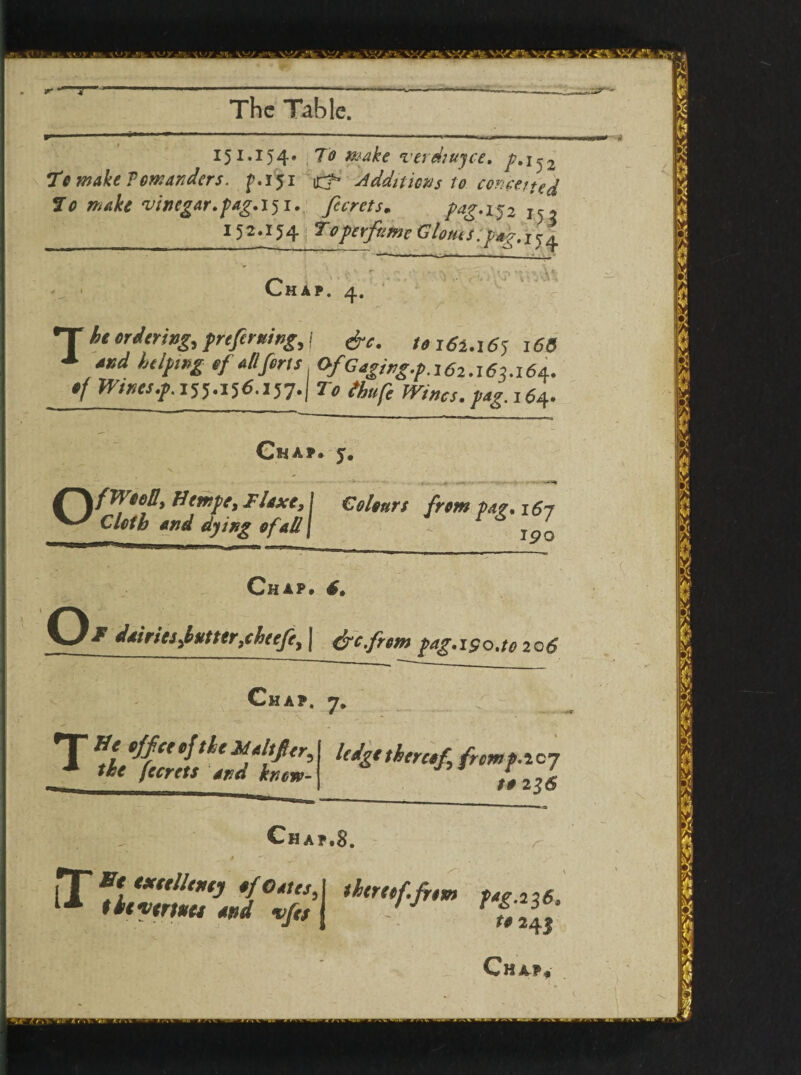 The Table.
151.154.
To make Pomanders. p.151
To make vinegar. pag.151.
152.154
To make verdiuyce. p.152
☞ Additions to conceited
secrets. pag.152 153
To perfume Gloues. pag.154
Chap. 4.
The ordering, preseruing,
and helping of all sorts
of Wines. p. 155.156.157.
&c. to 162.165 166
Of Gaging. p. 162.163.164.
To thuse Wines. pag. 164.
Chap. 5.
Of Wooll, Hempe, Flaxe,
Cloth and dying of all
Colours from pag. 167
190
Chap. 6.
Of dairies, butter, cheese,
&c. from pag. 190. to 206
Chap. 7.
The office of the Maltster,
the secrets and know-
ledge thereof, from p. 207
to 236
Chap. 8.
The excellency of Oates,
the vertues and vses
thereof. from pag. 236.
to 243
Chap.